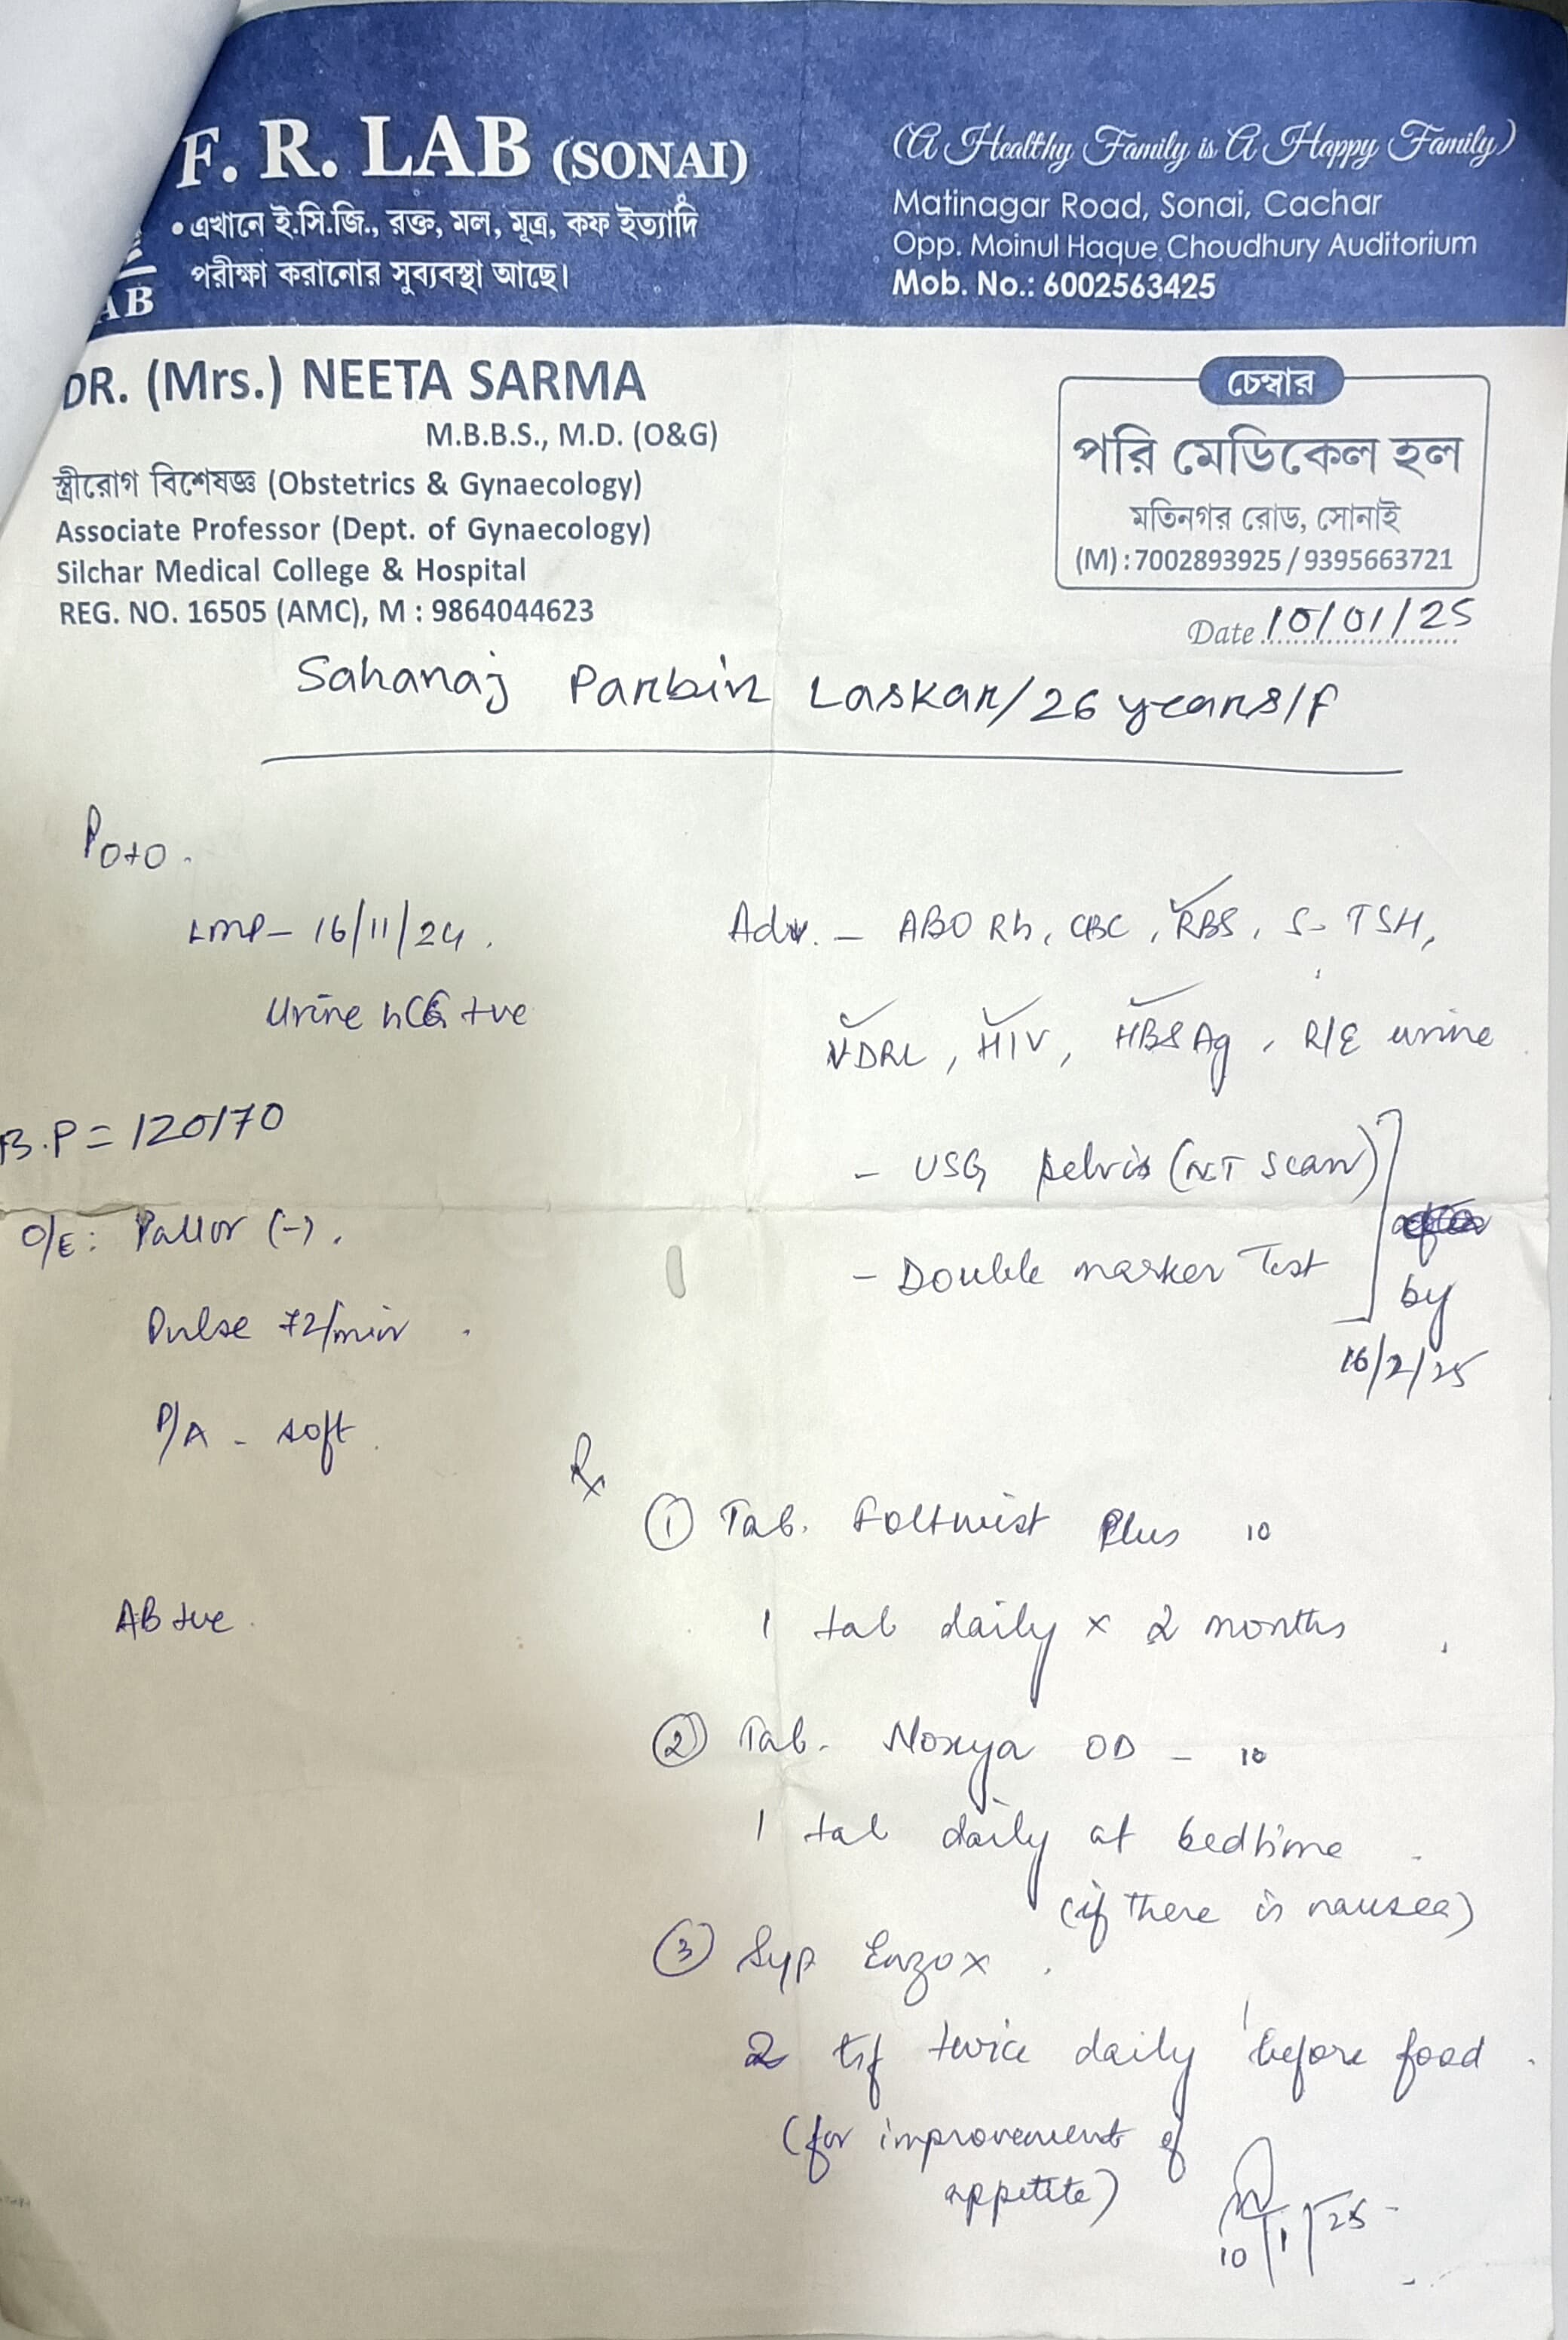 F. R. LAB (SONAI)
• এখানে ই.সি.জি., রক্ত, মল, মূত্র, কফ ইত্যাদি
পরীক্ষা করানোর সুব্যবস্থা আছে।
AB
(A Healthy Family is A Happy Family)
Matinagar Road, Sonai, Cachar
Opp. Moinul Haque Choudhury Auditorium
Mob. No.: 6002563425
DR. (Mrs.) NEETA SARMA
M.B.B.S., M.D. (O&G)
স্ত্রীরোগ বিশেষজ্ঞ (Obstetrics & Gynaecology)
Associate Professor (Dept. of Gynaecology)
Silchar Medical College & Hospital
REG. NO. 16505 (AMC), M : 9864044623
চেম্বার
পরি মেডিকেল হল
মতিনগর রোড, সোনাই
(M) : 7002893925 / 9395663721
Date 10/01/25
Sahanaj Parbin Laskar/26 years/F
P0+0.
LMP - 16/11/24.
Urine hCG +ve
B.P = 120/70
O/E: Pallor (-).
Pulse 72/min.
P/A - soft.
AB +ve.
Adv. - ABO Rh, CBC, RBS, S. TSH,
VDRL, HIV, HBSAg, R/E urine
- USG pelvis (NT scan)
- Double marker Test
by
16/2/25
Rx
① Tab. Foltwist Plus 10
1 tab daily x 2 months
② Tab. Noxya OD - 10
1 tab daily at bedtime
(if there is nausea)
③ Syp Enzox
2 tsf twice daily before food.
(for improvement of
appetite)
10/1/25